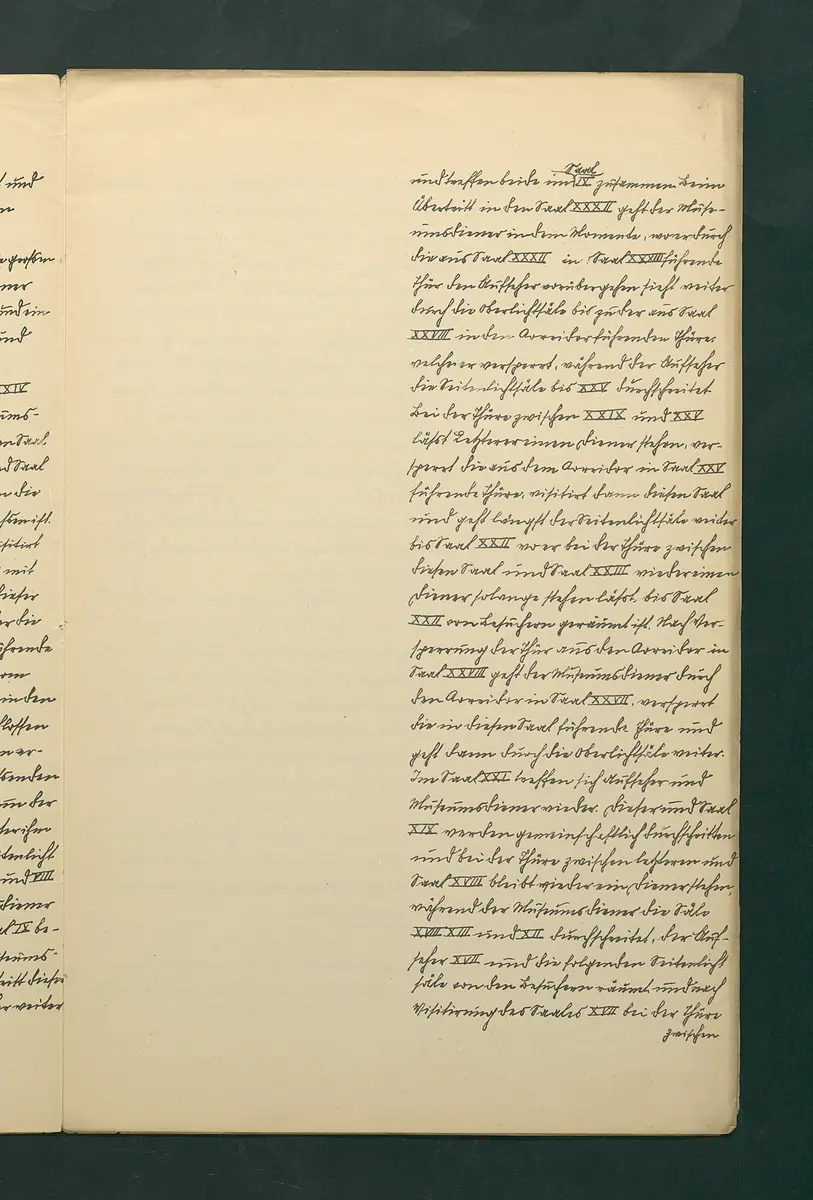 und
n
großen
ner
und ein
und
XXIV
ums-
en Saal
nd Saal
n die
isitirt
mit
dieser
er die
ührende
in den
schlossen
n ver-
der
ter ihm
tenlicht
und VIII
diener
al IX be-
seums-
ritt dieser
er weiter
Saal
und treffen beide im IX zusammen. Beim
Übertritt in den Saal XXXII geht der Muse-
umsdiener in dem Momente, wo er durch
die aus Saal XXXII in Saal XXXIII führende
Thür den Aufseher vorübergehen sieht weiter
durch die Oberlichtsäle bis zu der aus Saal
XXVIII in den Corridor führenden Thüre,
welche er versperrt, während der Aufseher
die Seitenlichtsäle bis XXV durchschreitet
Bei der Thüre zwischen XXIX und XXV
lässt Letzterer einen Diener stehen, ver-
sperrt die aus dem Corridor in Saal XXV
führende Thüre, visitirt dann diesen Saal
und geht längst der Seitenlichtsäle weiter
bis Saal XXII wo er bei der Thüre zwischen
diesen Saal und Saal XXIII wieder einen
Diener solange stehen lässt, bis Saal
XXII von Besuchern geräumt ist. Nach Ver-
sperrung der Thür aus den Corridor in
Saal XXVIII geht der Museumsdiener durch
den Corridor in Saal XXVII, versperrt
die in diesen Saal führende Thüre und
geht dann durch die Oberlichtsäle weiter.
Im Saal XXI treffen sich Aufseher und
Museumsdiener wieder. Dieser und Saal
XIX werden gemeinschaftlich durchschritten
und bei der Thüre zwischen letzteren und
Saal XVIII bleibt wieder ein Diener stehen,
während der Museumsdiener die Säle
XVIII XIII und XII durchschreitet, der Auf-
seher XVII und die folgenden Seitenlicht
säle von den Besuchern räumt und nach
Visitirung des Saales XVII bei der Thüre
zwischen